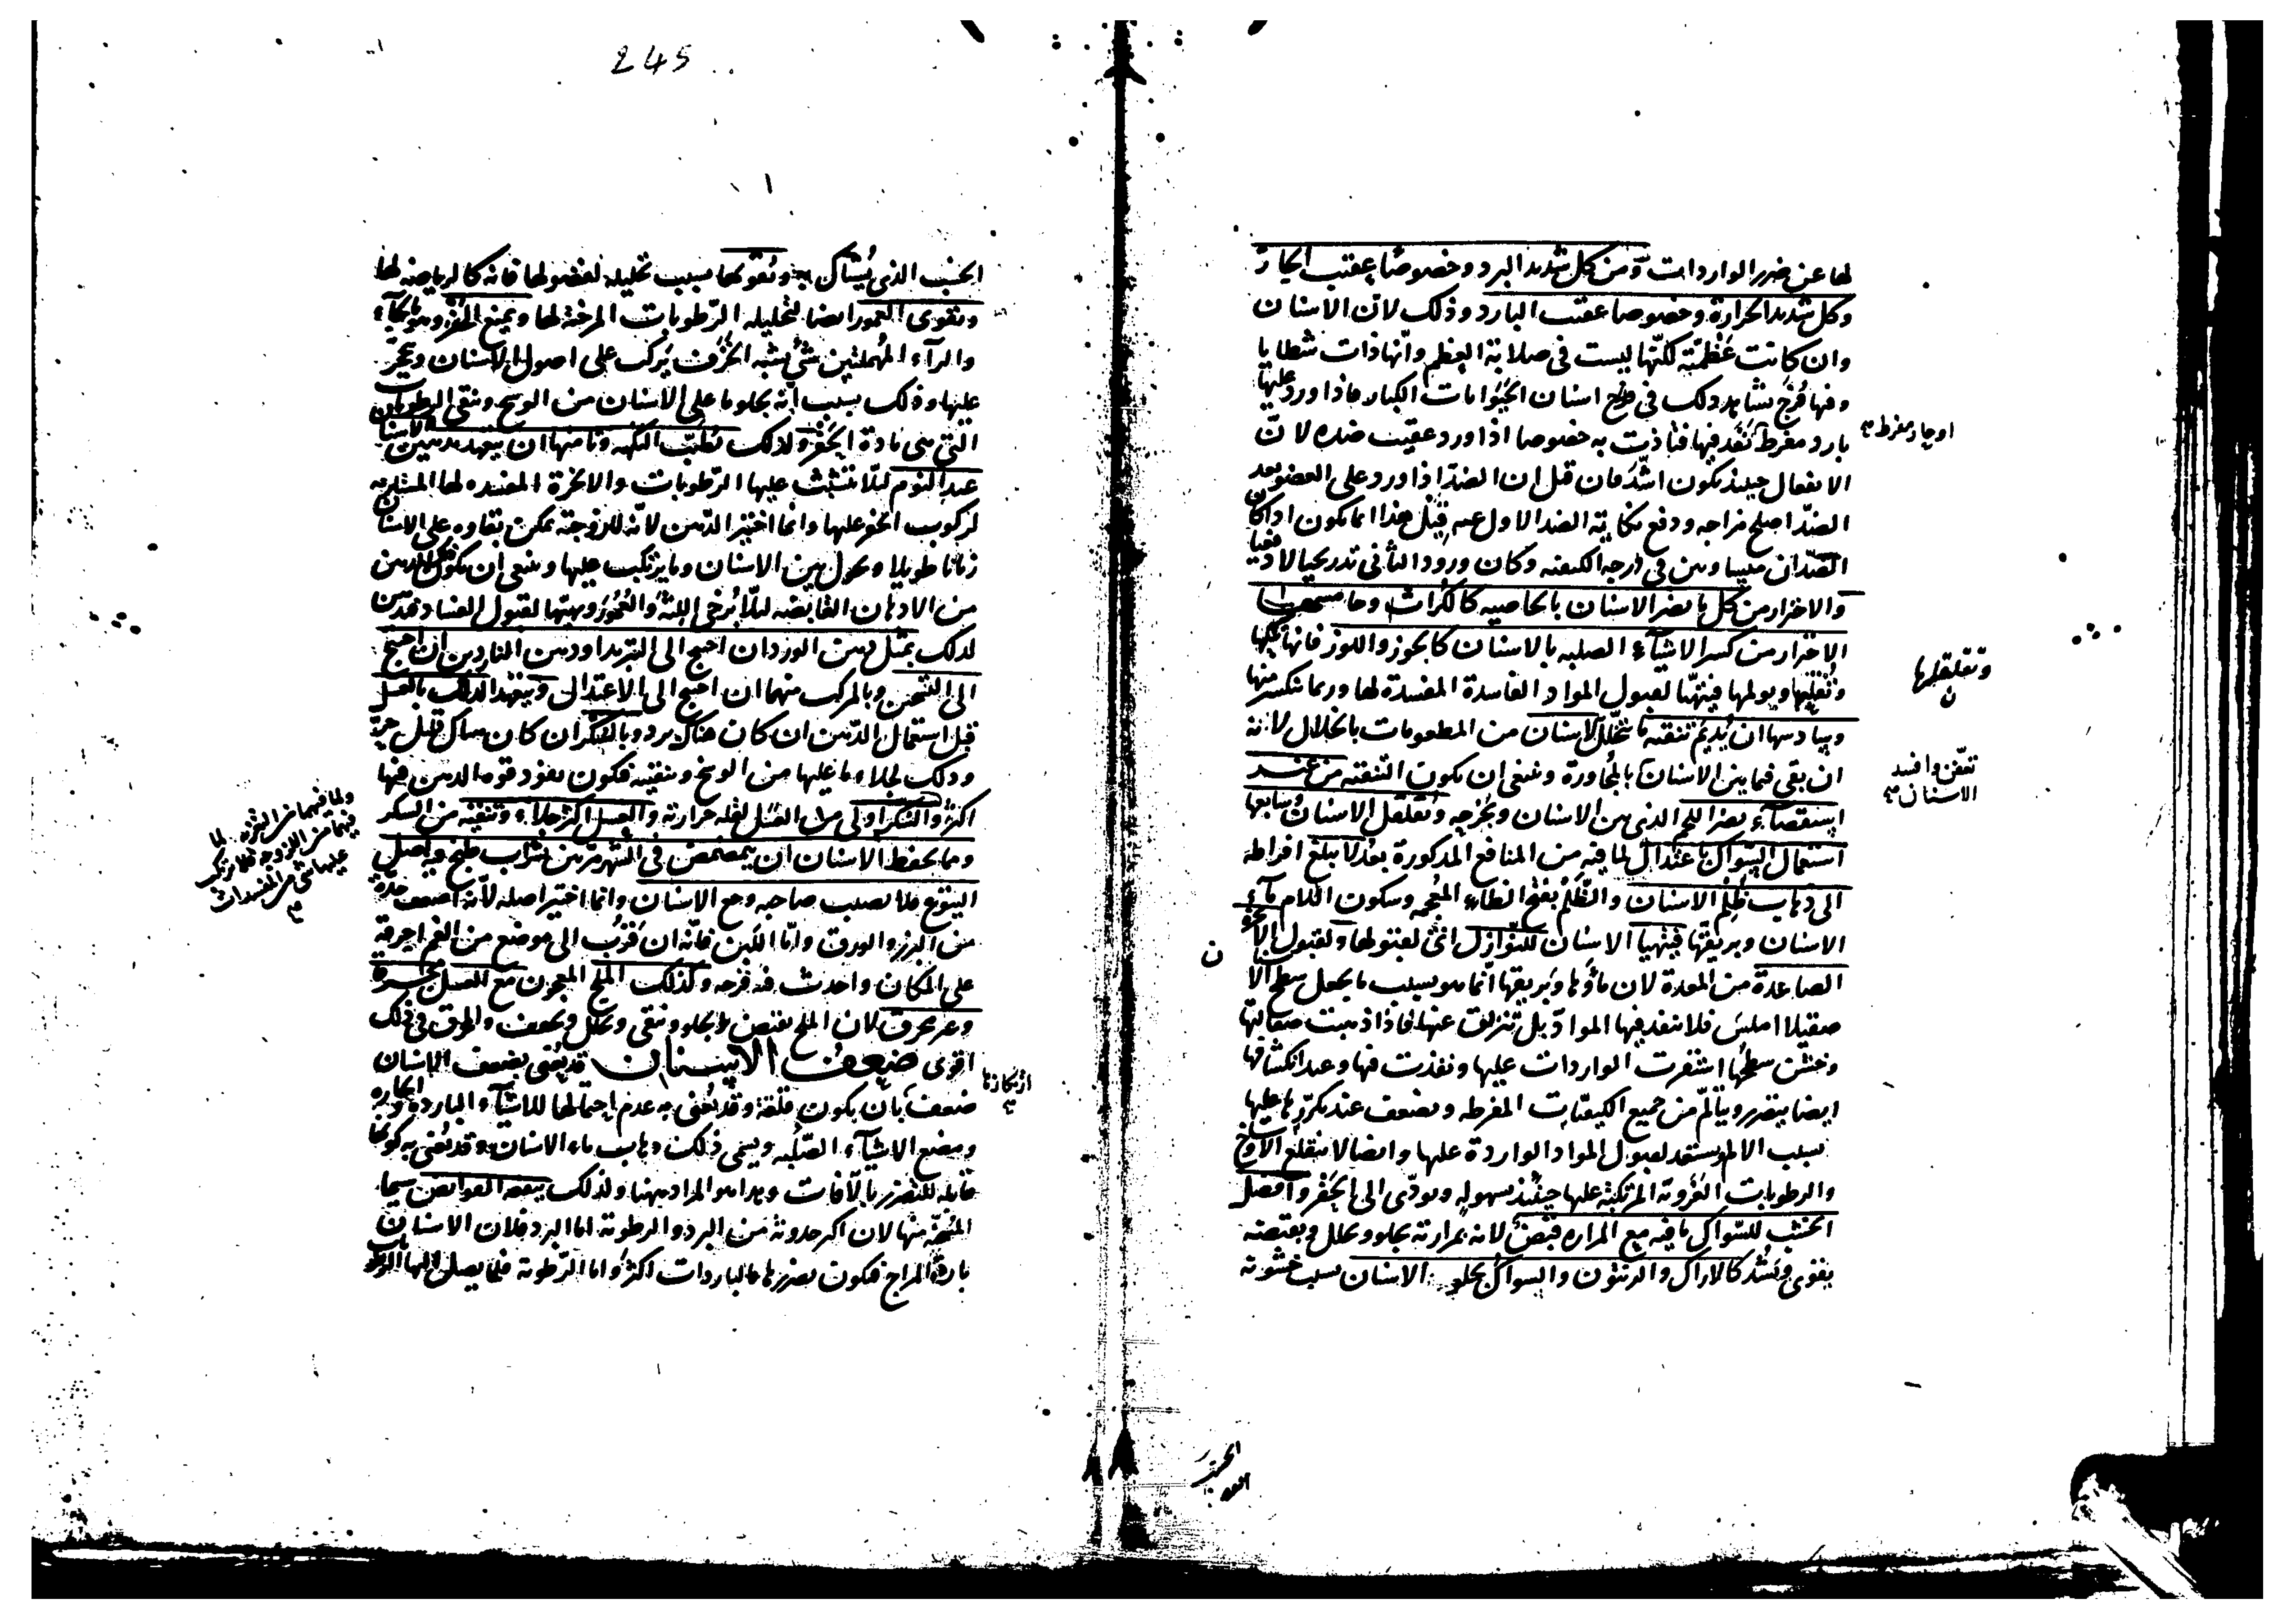 لها عن ضرر الواردات ومن كل شديد البرد وخصوصا عقيب الحار
وكل شديد الحرارة وخصوصا عقيب البارد وذلك لان الاسنان
وان كانت عظمية لكنها ليست في صلابة العظم وانها ذات شظايا
وفيها فرج نشاهد ذلك في اسنان الحيوانات الكبار فاذا ورد عليها
بارد مفرط نفذ فيها فتاذت به خصوصا اذا ورد عقيب ضده لان
او حار مفرط
الانفعال حينئذ يكون اشد فان قيل ان الضد اذا ورد على العضو بعد
الضد اصلح مزاجه ودفع نكاية الضد الاول عنه قيل هذا انما يكون اذا كان
الضدان متساويين في درجة الكيفية وكان ورود الثاني تدريجيا لا دفعيا
والاحتراز من كل ما يضر الاسنان بالخاصية كالكراث وخامسها
الاحتراز من كسر الاشياء الصلبة بالاسنان كالجوز واللوز فانها تحكها
وتقلقلها
ويولمها فيتهيا لقبول المواد الفاسدة المفسدة لها وربما تنكسر منها
وسادسها ان يديم تنقية ما تخلل الاسنان من المطعومات بالخلال لانه
ان بقي فيما بين الاسنان بالمجاورة وينبغي ان يكون التنقية من غير
تعفن وافسد
الاسنان
استقصاء يضر اللحم الذي بين الاسنان ويخرجه وتقلقل الاسنان وسابعها
استعمال السواك باعتدال لما فيه من المنافع المذكورة بعد لا يبلغ افراطه
الى ذهاب ظلم الاسنان والظلم بفتح الظاء المعجمة وسكون اللام ماء
الاسنان وبريقها فيتهيا الاسنان للنوازل التي لقبولها ولقبول الابخرة
الصاعدة من المعدة لان ماؤها وبريقها انما هو بسبب ما يجعل سطح الا
صقيلا املس فلا تنفذ فيها المواد بل تنزلق عنها فاذا ذهبت صقالتها
وخشن سطحها استقرت الواردات عليها ونفذت فيها وعند انكشافها
ايضا يتضرر ويتألم من جميع الكيفيات المفرطة ويضعف عند تكررها عليها
بسبب الالم ويستعد لقبول المواد الواردة عليها وايضا لا ينقلع الاوساخ
والرطوبات الغروية المرتكبة عليها حينئذ بسهولة ويودي الى الحفر وافضل
الخشب للسواك ما فيه مع المرارة قبض لانه بمرارته يجلو ويحلل وبقبضه
يقوي ويشد كالاراك والزيتون والسواك يجلو الاسنان بسبب خشونة
245
الخشب الذي يستاك به ويقويها بسبب تحليله لفضولها فانه كالرياضة لها
ويقوي العمور ايضا لتحليله الرطوبات المرخية لها ويمنع الحفر وهو بالحاء
والراء المهملتين شيء يشبه الخزف يركب على اصول الاسنان ويتحجر
عليها وذلك بسبب انه يجلو ما على الاسنان من الوسخ وينقي الرطوبات
التي هي مادة الحفر ولذلك يطيب النكهة وثامنها ان يتعهد بدهن الاسنان
عند النوم لئلا يتشبث عليها الرطوبات والابخرة المفسدة لها المستلزمة
لركوب الحفر عليها وانما اختير الدهن لانه للزوجته يمكن بقاوه على الاسنان
زمانا طويلا ويحول بين الاسنان وما يرتكب عليها وينبغي ان يكون الدهن
من الادهان القابضة لئلا يرخي اللثة والعمور ويهيئها لقبول الفساد فتدهن
لذلك بمثل دهن الورد ان احتيج الى التبريد او دهن الناردين ان احتيج
الى التسخين وبالمركب منهما ان احتيج الى الاعتدال ويتقدم الدلك بالعسل
قبل استعمال الدهن ان كان هناك برد وبالسكر ان كان هناك قليل حر
وذلك لجلاء ما عليها من الوسخ وتنقيته فيكون نفوذ قوة الدهن فيها
اكثر والسكر اولى من العسل لقلة حرارته والعسل اكثر جلاء وتنقية من السكر
ولما فيهما من
فيهما من اللزوجة
ومما يحفظ الاسنان ان يتمضمض في الشهر مرتين بشراب طبخ فيه اصل
اليتوع فلا يصيب صاحبه وجع الاسنان وانما اختير اصله لانه اضعف حدة
من البزر والورق واما اللبن فانه ان قرب الى موضع من الفم احرقه
على المكان واحدث فيه قرحة وكذلك الملح المعجون مع العسل
وغير محرق لان الملح يقبض ويجلو وينقي ويحلل ويجفف والمحرق في ذلك
اقوى ضعف الاسنان قد يعنى بضعف الاسنان
ضعف بان يكون قلقة وقد يعنى به عدم احتمالها للاشياء الباردة والحارة
ومضغ الاشياء الصلبة ويسمى ذلك ذهاب ماء الاسنان وقد يعنى به كونها
قابلة للتضرر بالآفات وهذا هو المراد ههنا ولذلك ينفعه القوابض سيما
المسخنة منها لان اكثر حدوثه من البرد والرطوبة اما البرد فلان الاسنان
باردة المزاج فيكون تضررها بالباردات اكثر واما الرطوبة فلما يصل اليها